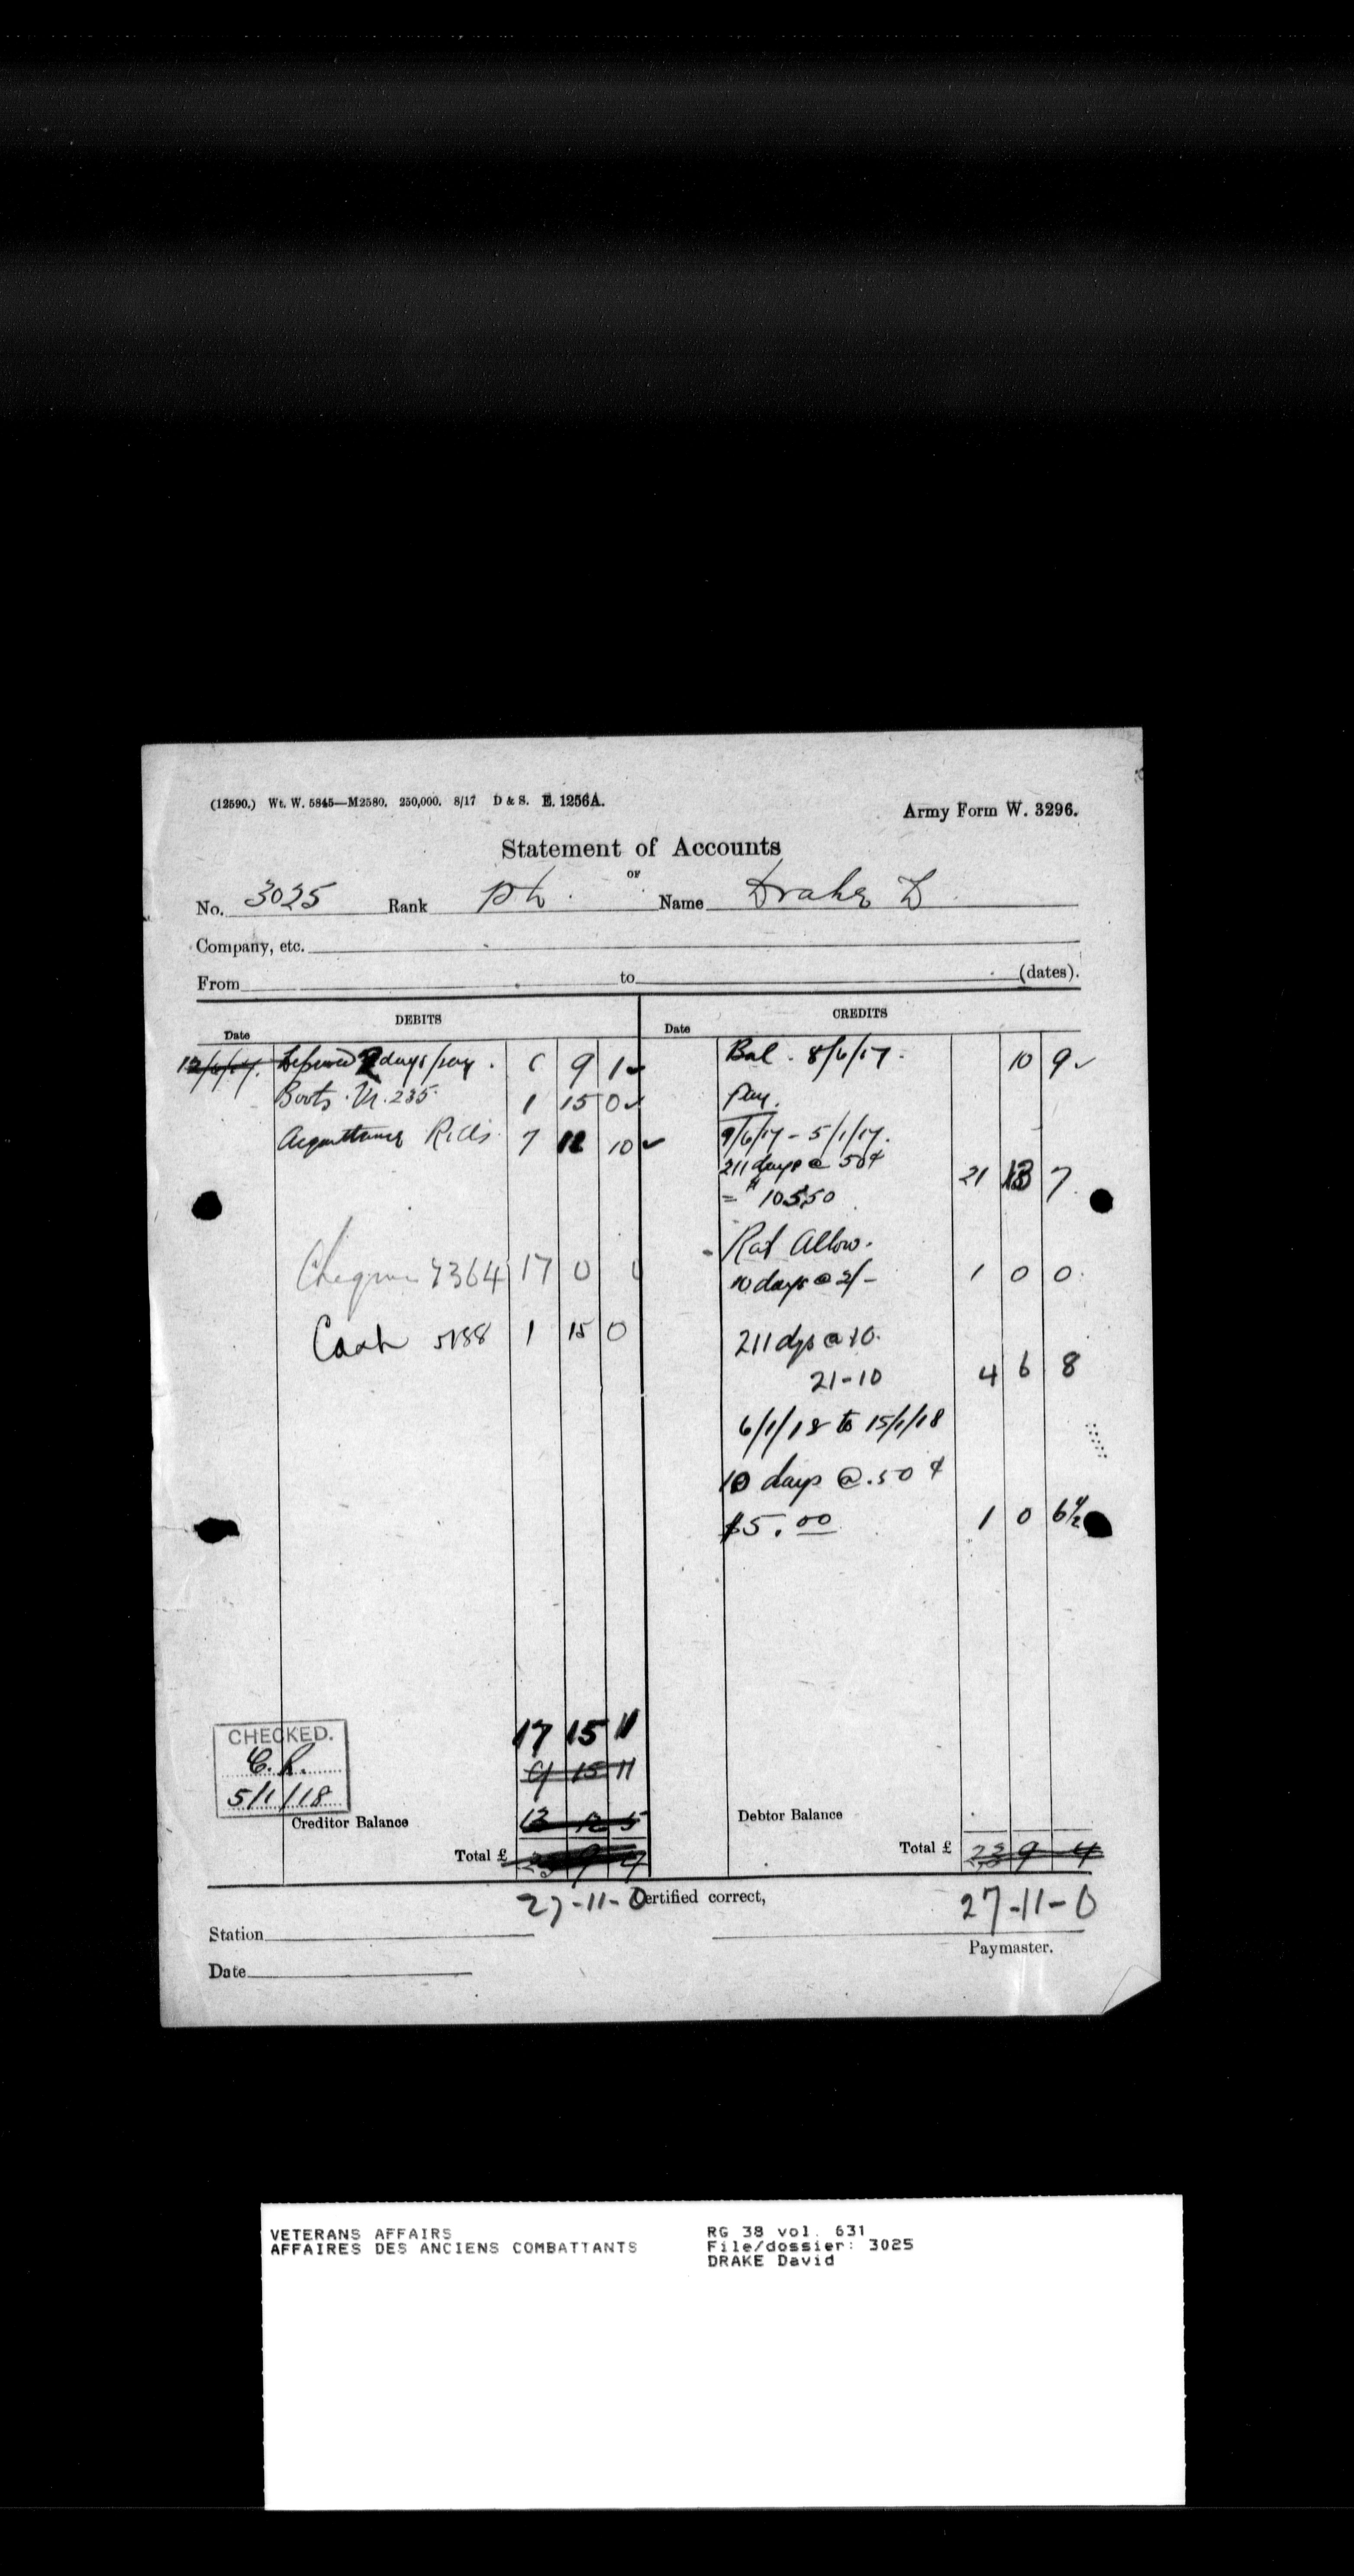 (12590.) Wt. W. 5845—M2580. 250,000. 8/17 D & S. E. 1256A.
Army Form W. 3296.
Statement of Accounts
OF
No. 3025 Rank Pte. Name Drake D
Company, etc.
From to (dates).
DEBITS CREDITS
Date Date
12/6/17. days pay. 9 1 Bal. 8/6/17. 10 9
Boots. 235. 1 15 0 Pay.
Acquittance Rolls 7 12 10 9/6/17 - 5/1/17.
211 days @ 50¢ 21 13 7
= $105.50
Rat Allow.
Cheque 7364 17 0 0 10 days @ 2/- 1 0 0
Cash 5188 1 15 0 211 dys @ 10.
21-10 4 6 8
6/1/18 to 15/1/18
10 days @ .50¢
$5.00 1 0 6½
17 15 11
CHECKED.
9 15 11
5/1/18
Creditor Balance 13 5 Debtor Balance
Total £ 23 9 4 Total £ 23 9 4
27-11-0 Certified correct, 27-11-0
Station
Paymaster.
Date
VETERANS AFFAIRS RG 38 vol. 631
AFFAIRES DES ANCIENS COMBATTANTS File/dossier: 3025
DRAKE David